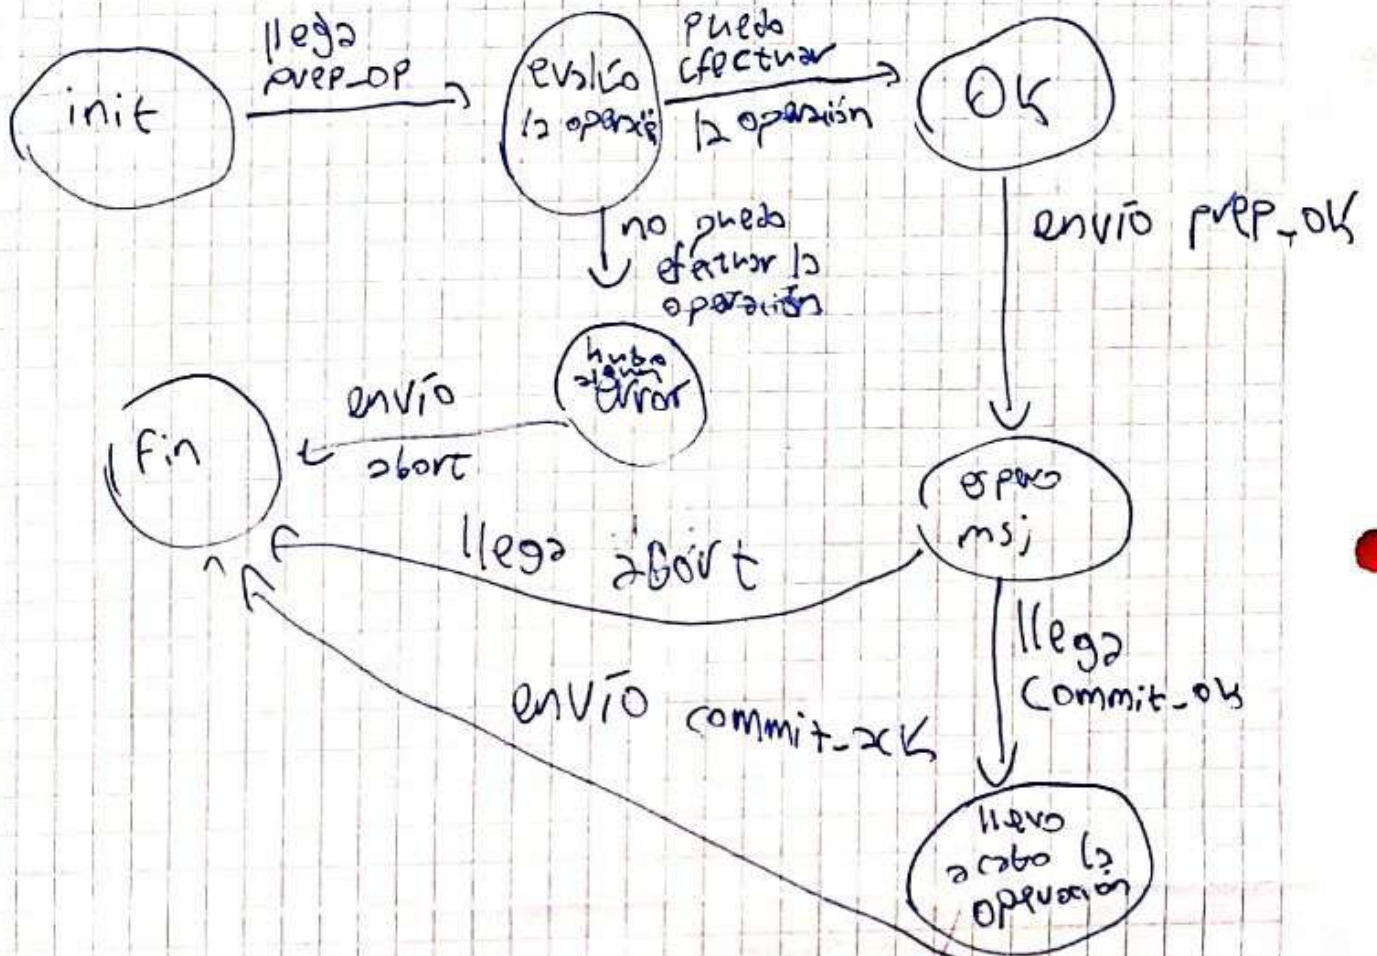 init
llega
prep_op
evalúo
la operació
puedo
efectuar
la operación
OK
envío prep_ok
no puedo
efectuar la
operación
hubo
algún
error
envío
abort
fin
espero
msj
llega abort
llega
commit_ok
envío commit_ack
llevo
acabo la
operación